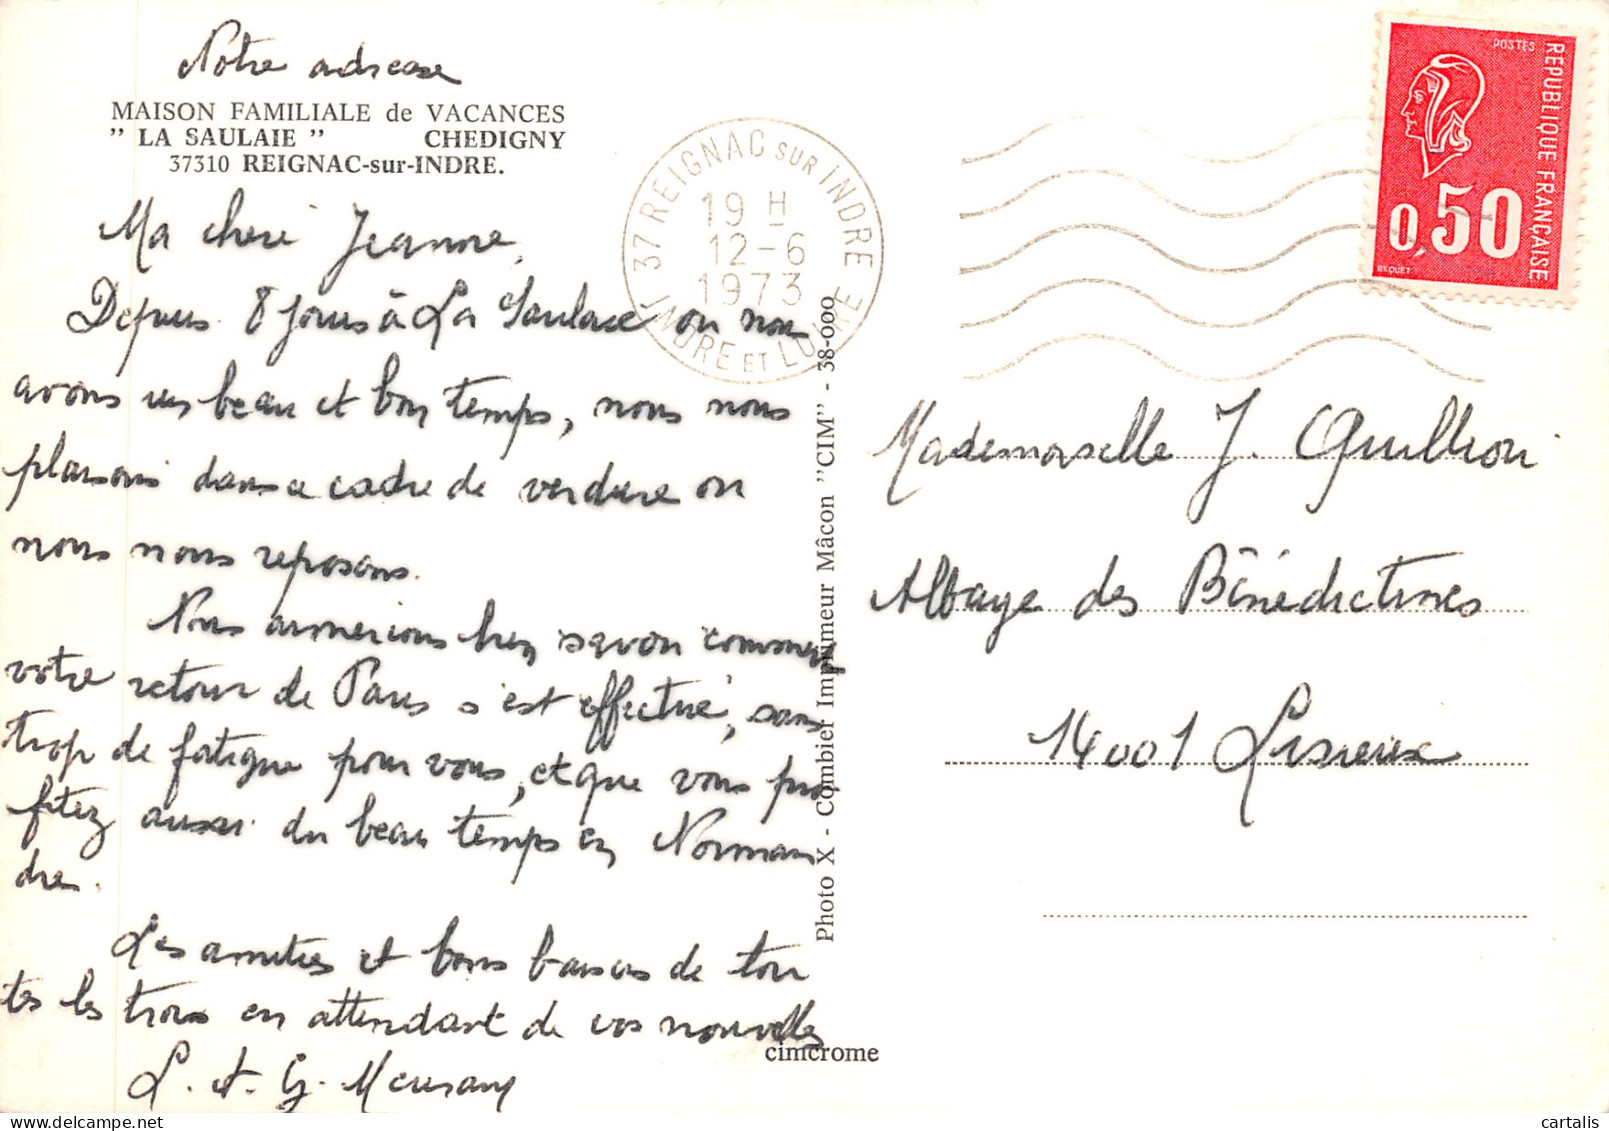 Notre adresse
MAISON FAMILIALE de VACANCES
" LA SAULAIE " CHEDIGNY
37310 REIGNAC-sur-INDRE.
Ma chere Jeanne,
Depuis 8 jours à La Saulaie on nous
avons un beau et bon temps, nous nous
plaisons dans ce cadre de verdure on
nous nous reposons.
Nous aimerions bien savoir comment
votre retour de Paris s'est effectué, sans
trop de fatigue pour vous, et que vous pro
fitez aussi du beau temps en Norman
die.
Les amitiés et bons baisers de tou
tes les trois en attendant de vos nouvelles
L. A. G.
37 REIGNAC SUR INDRE
19 H
12-6
1973
INDRE ET LOIRE
Photo X - Combier Imprimeur Mâcon "CIM" - 38-000
cimcrome
POSTES
REPUBLIQUE FRANÇAISE
0,50
BEQUET
Mademoiselle J.
Abbaye des Bénédictines
14001 Lisieux
cartalis